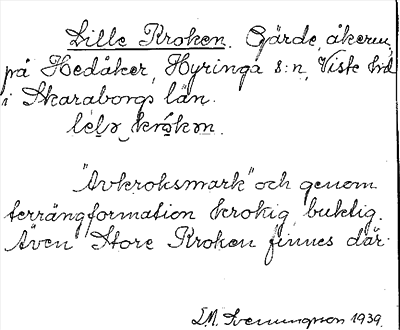 Lille Kroken. Gärde, åkerm,
på Hedåker, Hyringa s:n, Viste hd
i Skaraborgs län.
lelə krokən.
"Avkroksmark" och genom
terrängformation krokig, buktig.
Även Store Kroken finnes där.
L.M. Svenungson 1939.